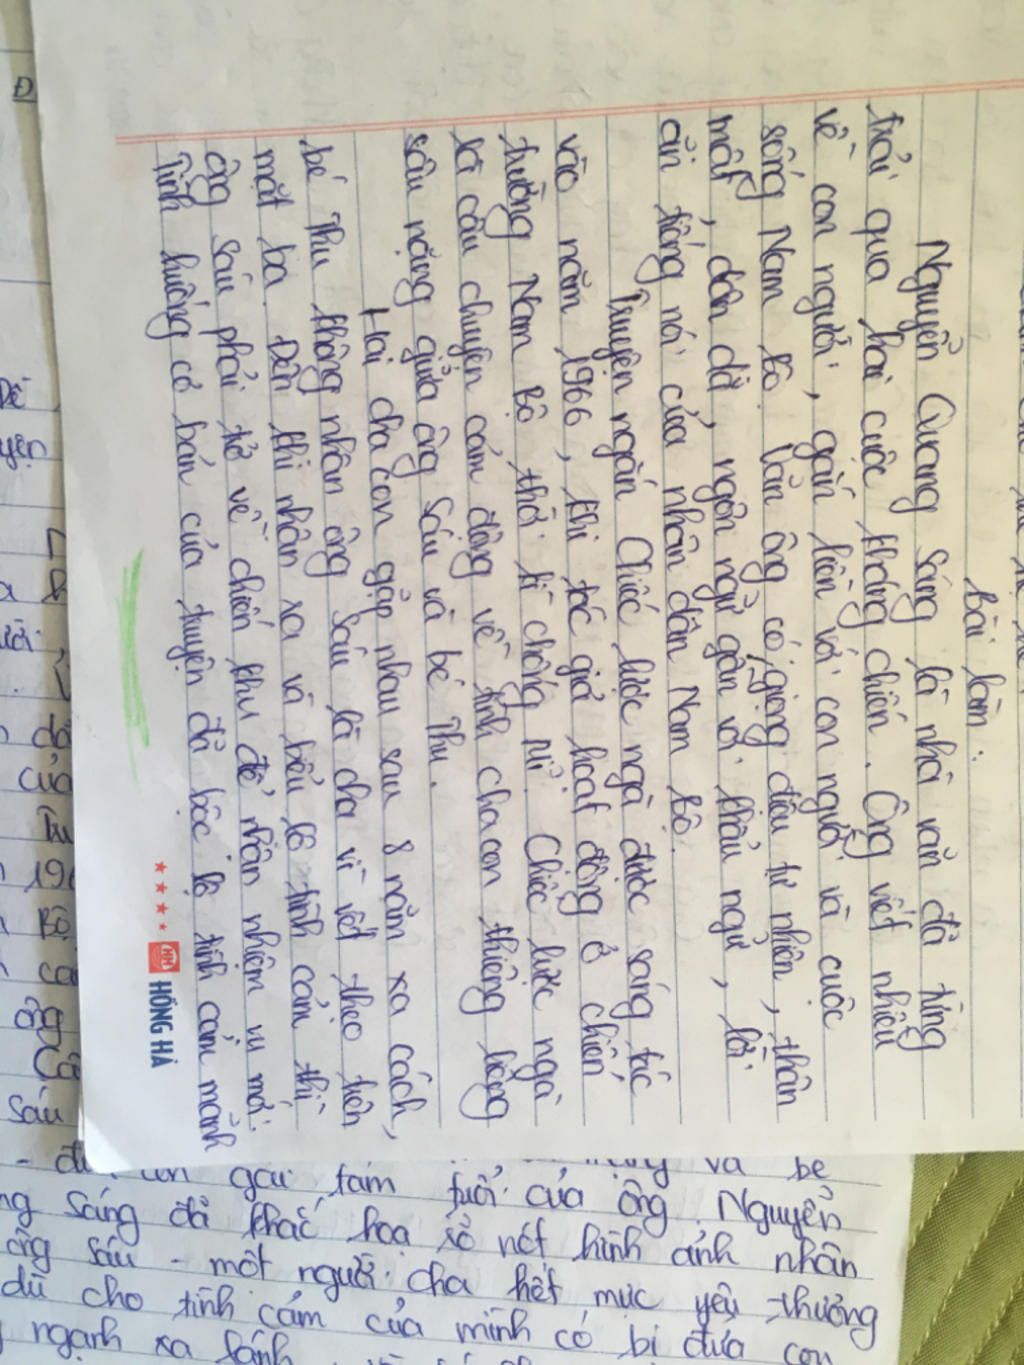 Bài làm:
Nguyễn Quang Sáng là nhà văn đã từng
trải qua hai cuộc kháng chiến. Ông viết nhiều
về con người, gắn liền với con người và cuộc
sống Nam Bộ. Văn ông có giọng điệu tự nhiên, thân
mật, dân dã, ngôn ngữ gần với khẩu ngữ, lời
ăn tiếng nói của nhân dân Nam Bộ.
Truyện ngắn Chiếc lược ngà được sáng tác
vào năm 1966, khi tác giả hoạt động ở chiến
trường Nam Bộ thời kì chống Mĩ. Chiếc lược ngà
là câu chuyện cảm động về tình cha con thiêng liêng
sâu nặng giữa ông Sáu và bé Thu.
Hai cha con gặp nhau sau 8 năm xa cách,
bé Thu không nhận ông Sáu là cha vì vết thẹo trên
mặt ba. Đến khi nhận xa và biểu lộ tình cảm thì
ông Sáu phải trở về chiến khu để nhận nhiệm vụ mới.
Tình huống cơ bản của truyện đã bộc lộ tình cảm mãnh
HỒNG HÀ
gái tám tuổi của ông. Nguyễn
sáng đã khắc họa rõ nét hình ảnh nhân
ông Sáu - một người cha hết mực yêu thương
dù cho tình cảm của mình có bị đứa con
ngạnh xa lánh
Đ
190
Bộ
ông
sáu
của
và bé